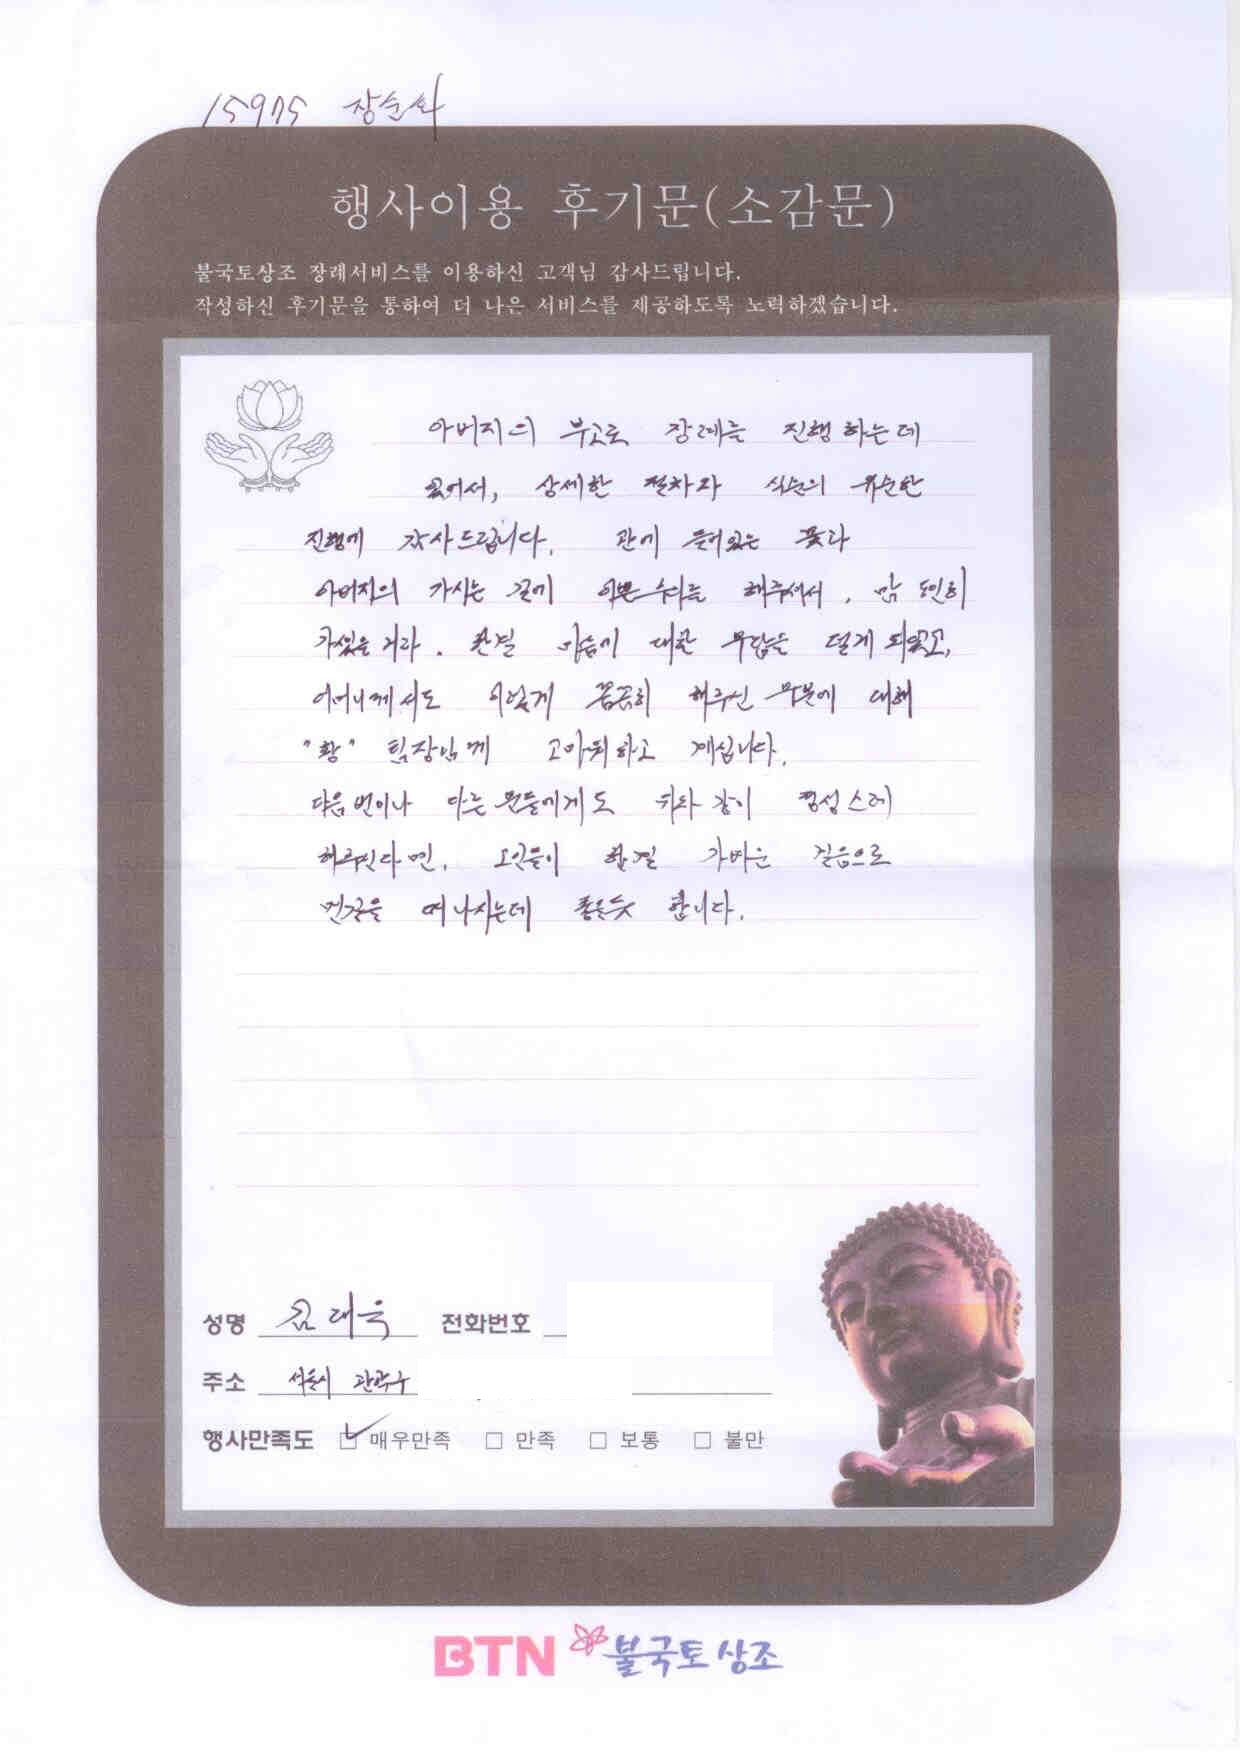 15975 장순화
행사이용 후기문(소감문)
불국토상조 장례서비스를 이용하신 고객님 감사드립니다.
작성하신 후기문을 통하여 더 나은 서비스를 제공하도록 노력하겠습니다.
아버지의 부고로 장례를 진행하는데
있어서, 상세한 절차와 식순의 유순한
진행에 감사드립니다. 관에 들어있는 꽃과
아버지의 가시는 길에 이쁜 수의를 해주셔서, 맘 편히
가셨을거라. 한결 마음에 대한 부담을 덜게 되었고,
어머니께서도 이렇게 꼼꼼히 해주신 부분에 대해
"황" 팀장님께 고마워하고 계십니다.
다음번이나 다른 분들에게도 위와 같이 정성스레
해주신다면, 고인들이 한결 가벼운 걸음으로
먼길을 떠나시는데 좋을듯 합니다.
성명 김대욱 전화번호
주소 서울시 관악구
행사만족도 매우만족 만족 보통 불만
BTN 불국토상조